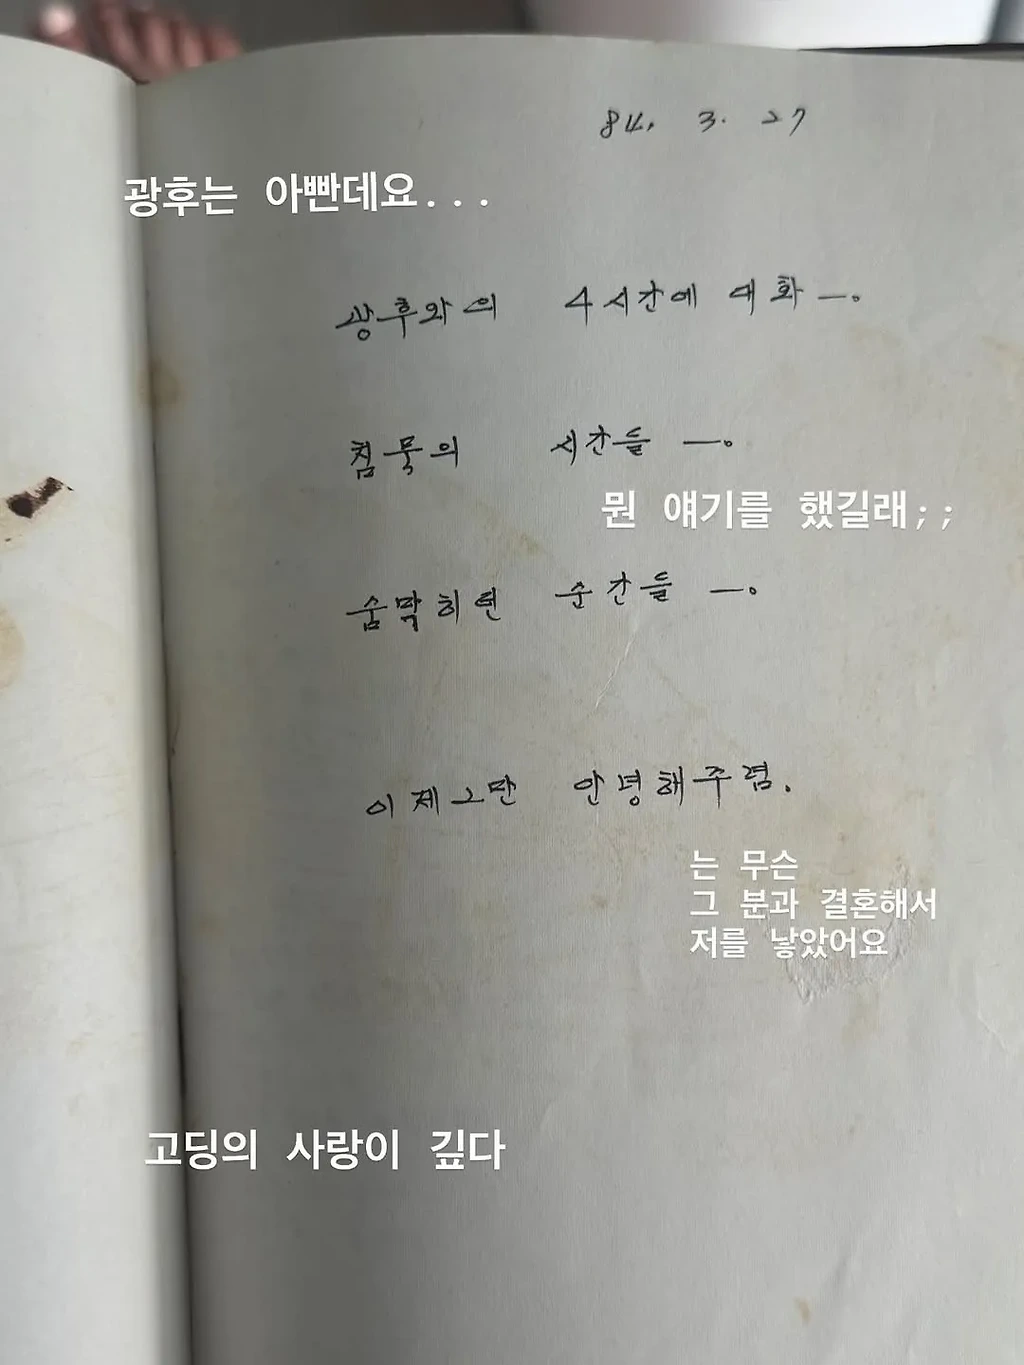 84. 3. 27
광후는 아빤데요...
광후와의 4시간에 대화 —.
침묵의 시간들 —.
뭔 얘기를 했길래;;
숨막히련 순간들 —.
이제그만 안녕해주렴.
는 무슨
그 분과 결혼해서
저를 낳았어요
고딩의 사랑이 깊다